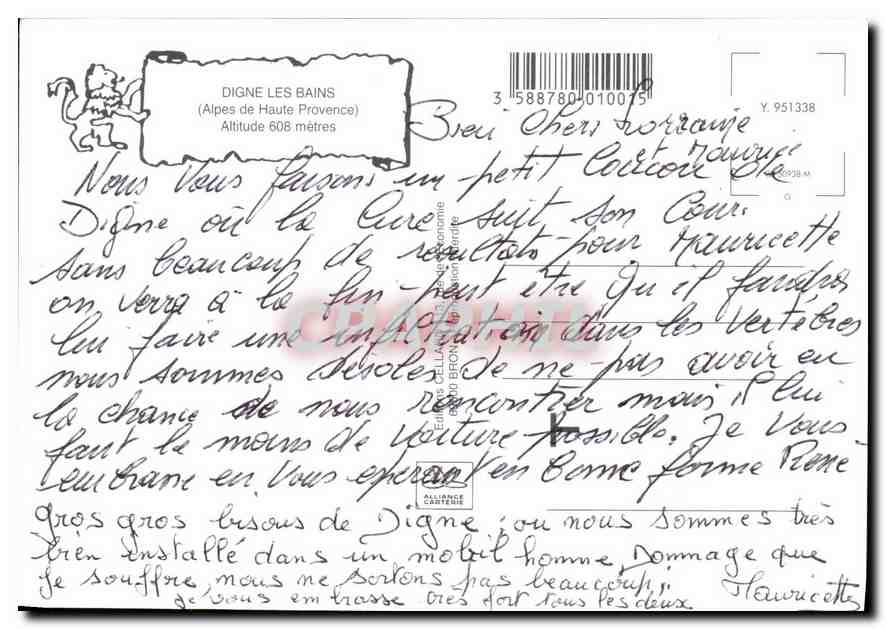 DIGNE LES BAINS
(Alpes de Haute Provence)
Altitude 608 mètres
3 588780 010015
Y. 951338
Bien Chers Lorraine
et Maurice
Nous Vous faisons un petit Coucou de
Digne où la Cure suit son Cour.
sans beaucoup de résultats pour Mauricette
on verra à la fin peut être qu'il faudra
lui faire une infiltration dans les vertèbres
nous sommes désolés de ne pas avoir eu
la chance de nous rencontrer mais il lui
faut le moins de voiture possible. Je Vous
embrasse en Vous esperant en bonne forme René
gros gros bisous de Digne, ou nous sommes très
bien installé dans un mobil homme Dommage que
je souffre, nous ne sortons pas beaucoup,
je vous embrasse très fort tous les deux Mauricette
Editions CELLARD
BRON
ALLIANCE
CARTERIE
CPAPHIL